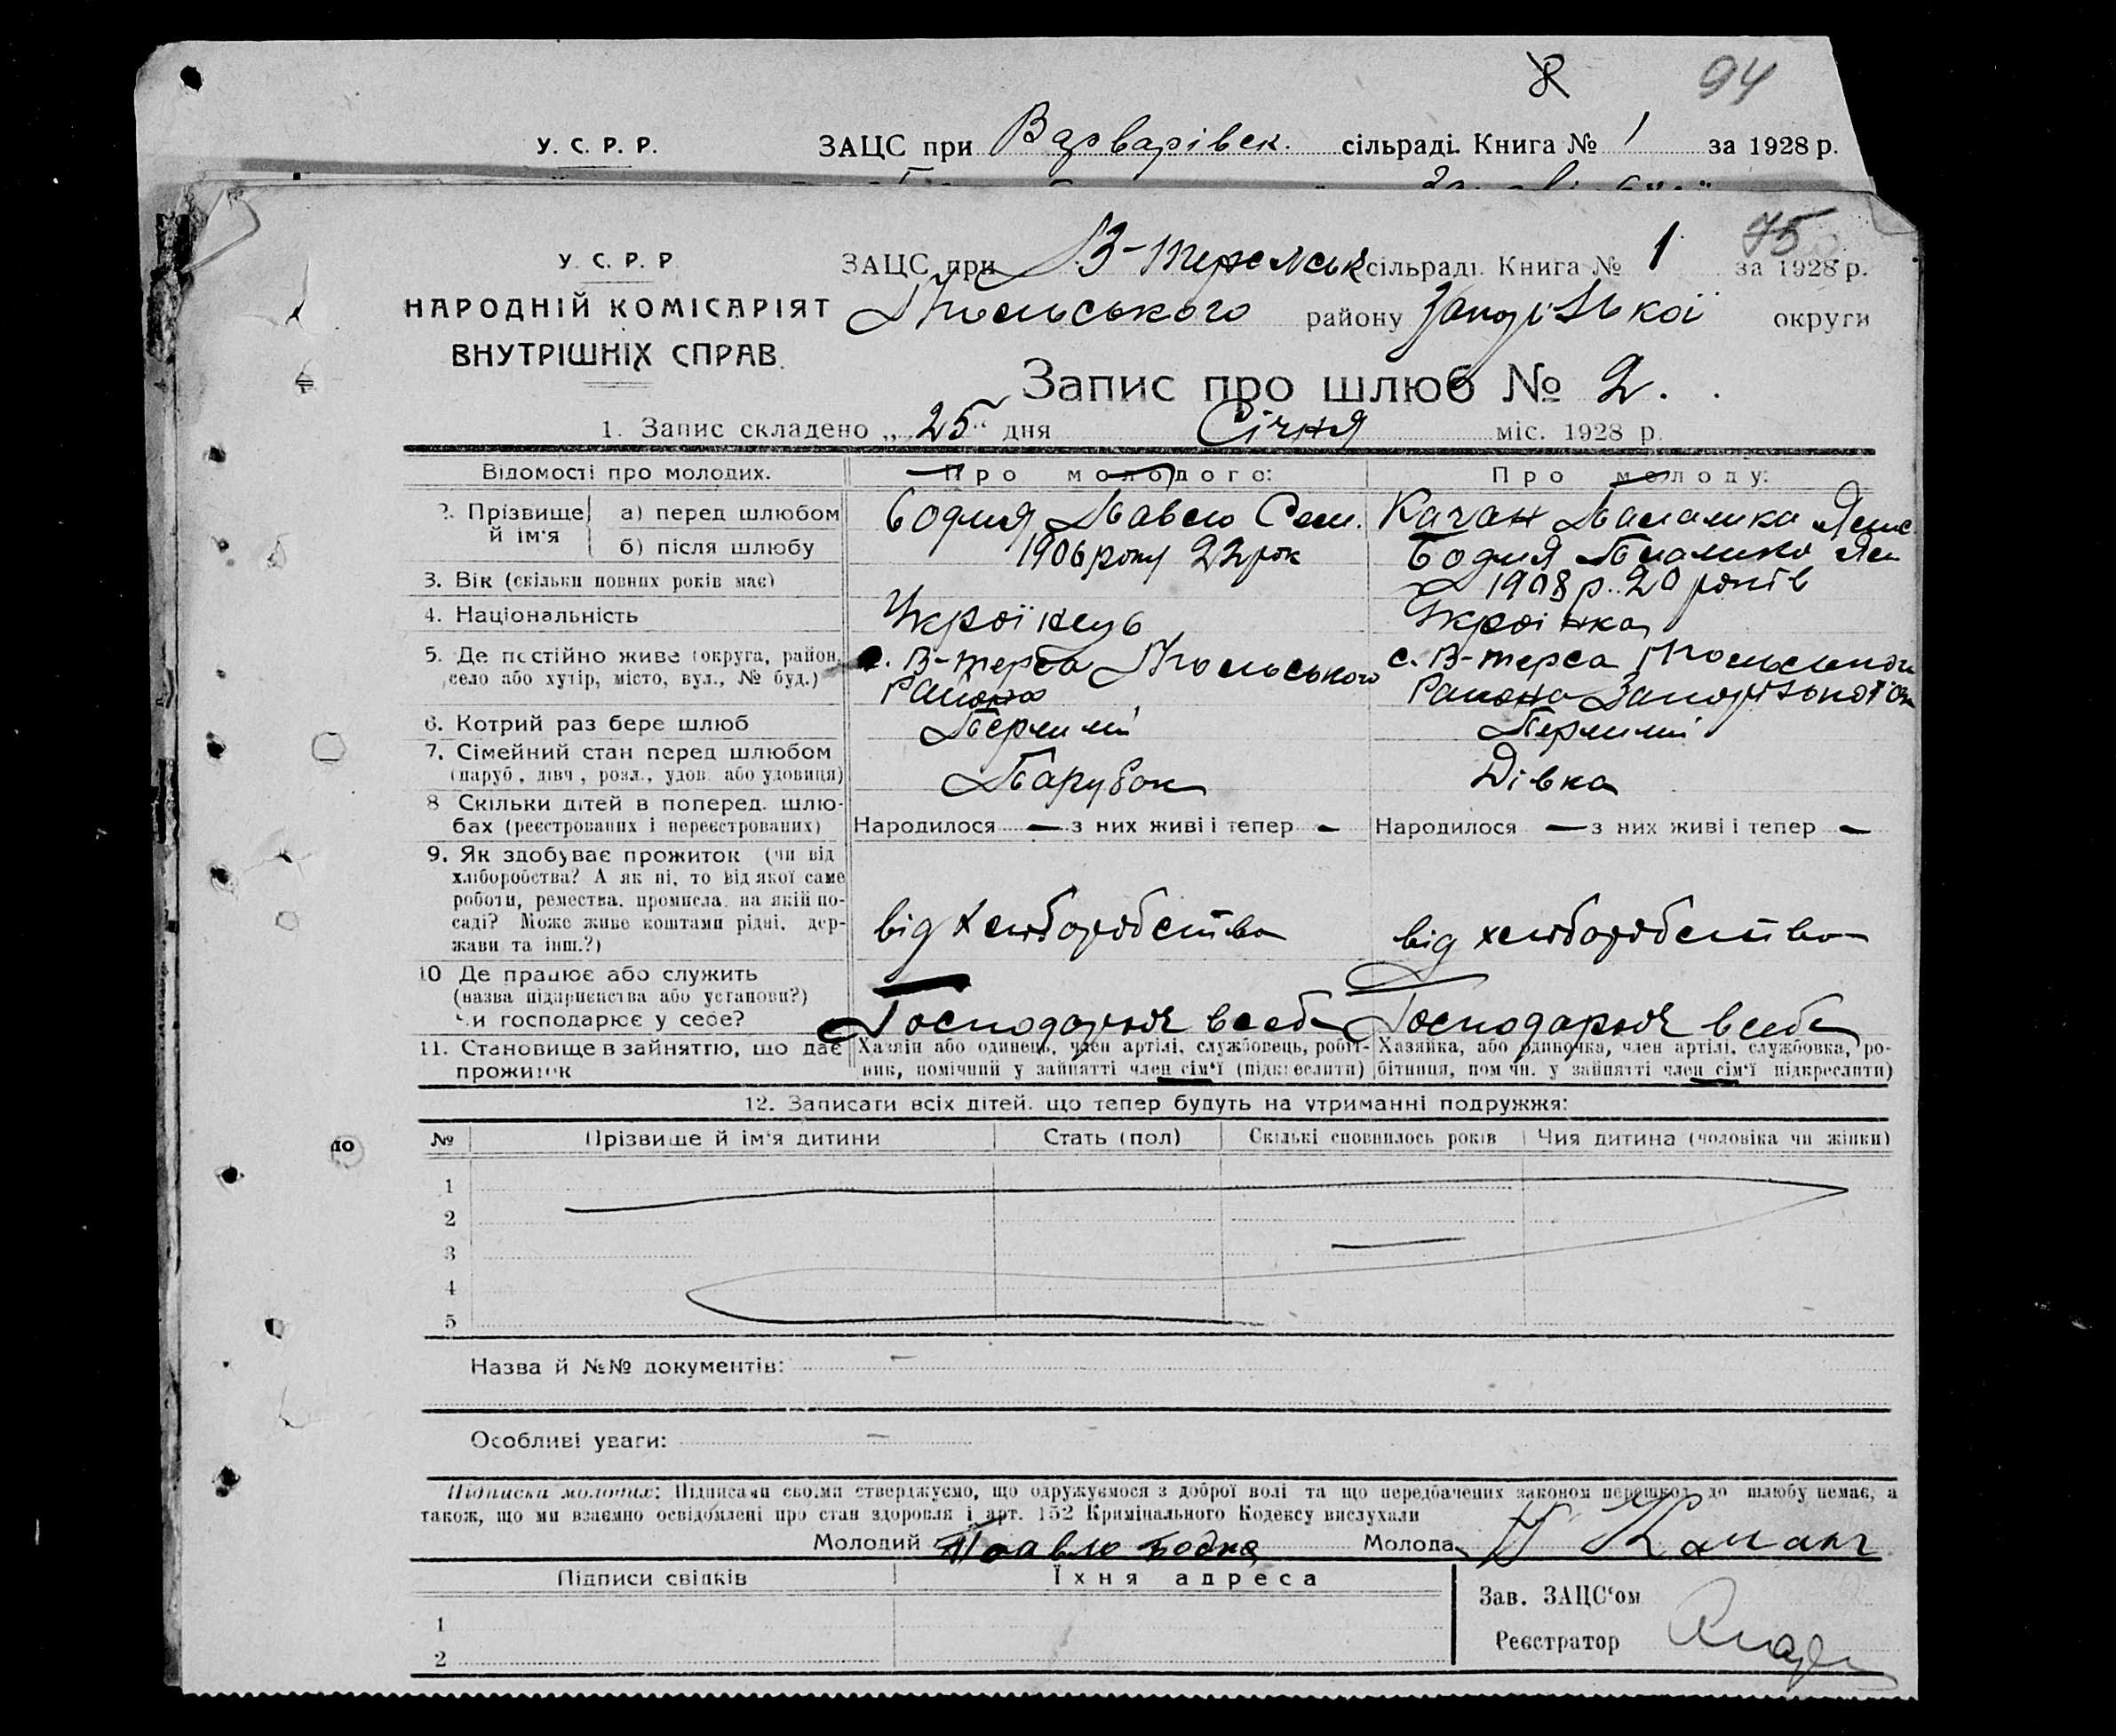 94
У. С. Р. Р. ЗАЦС при Варварівськ. сільраді. Книга № 1 за 1928 р.
75
У. С. Р. Р ЗАЦС при В-Терсянськ сільраді. Книга № 1 за 1928 р.
НАРОДНІЙ КОМІСАРІЯТ
ВНУТРІШНІХ СПРАВ.
району Запорізької округи
Запис про шлюб № 2.
1. Запис складено „25" дня Січня міс. 1928 р.
Відомості про молодих. Про молодого: Про молоду:
2. Прізвище й ім'я
а) перед шлюбом Бодня Павло Сем. Качан
б) після шлюбу 1906 року 22 рок Бодня
3. Вік (скільки повних років має) 1908 р. 20 років
4. Національність Українець Українка
5. Де постійно живе (округа, район, с. В-Терса с. В-Терса
село або хутір, місто, вул., № буд.) Района Района Запорізької ок
6. Котрий раз бере шлюб Перший Перший
7. Сімейний стан перед шлюбом
(паруб., дівч., розл., удов. або удовиця) Парубок Дівка
8 Скільки дітей в поперед. шлю-
бах (реєстрованих і нереєстрованих) Народилося — з них живі і тепер - Народилося — з них живі і тепер -
9. Як здобуває прожиток (чи від
хліборобства? А як ні, то від якої саме
роботи, ремества, промисла, на якій по-
саді? Може живе коштами рідні, дер- від хліборобства від хліборобства
жави та інш.?)
10 Де працює або служить
(назва підприємства або установи?)
Чи господарює у себе? Господарює в себе Господарює в себе
11. Становище в зайняттю, що дає Хазяїн або одинець, член артілі, службовець, робіт- Хазяйка, або одиночка, член артілі, службовка, ро-
прожиток ник, помічний у зайнятті член сім'ї (підкреслити) бітниця, помічн. у зайнятті член сім'ї підкреслити)
12. Записати всіх дітей, що тепер будуть на утриманні подружжя:
№ Прізвише й ім'я дитини Стать (пол) Скількі сповнилось років Чия дитина (чоловіка чи жінки)
1
2
3
4
5
Назва й №№ документів: —
Особливі уваги: —
Підписка молодих: Підписами своїми стверджуємо, що одружуємося з доброї волі та що передбачених законом перешкод до шлюбу немає, а
також, що ми взаємно освідомлені про стан здоровля і арт. 152 Кримінального Кодексу вислухали
Молодий Павло Бодня Молода Качан
Підписи свідків Їхня адреса
Зав. ЗАЦС'ом
1
Реєстратор
2